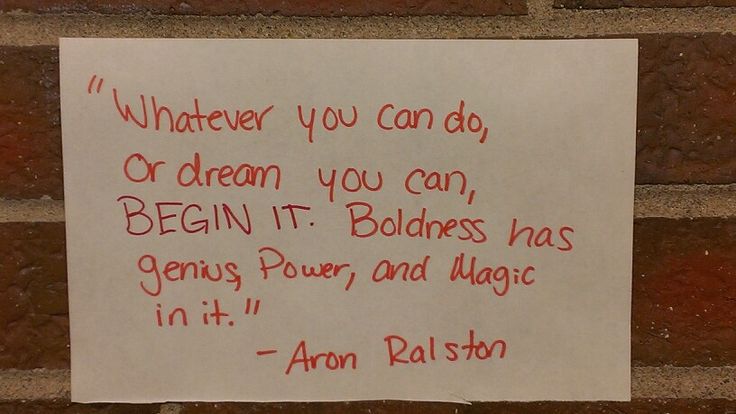 "Whatever you can do,
Or dream you can,
BEGIN IT. Boldness has
genius, Power, and Magic
in it."
- Aron Ralston